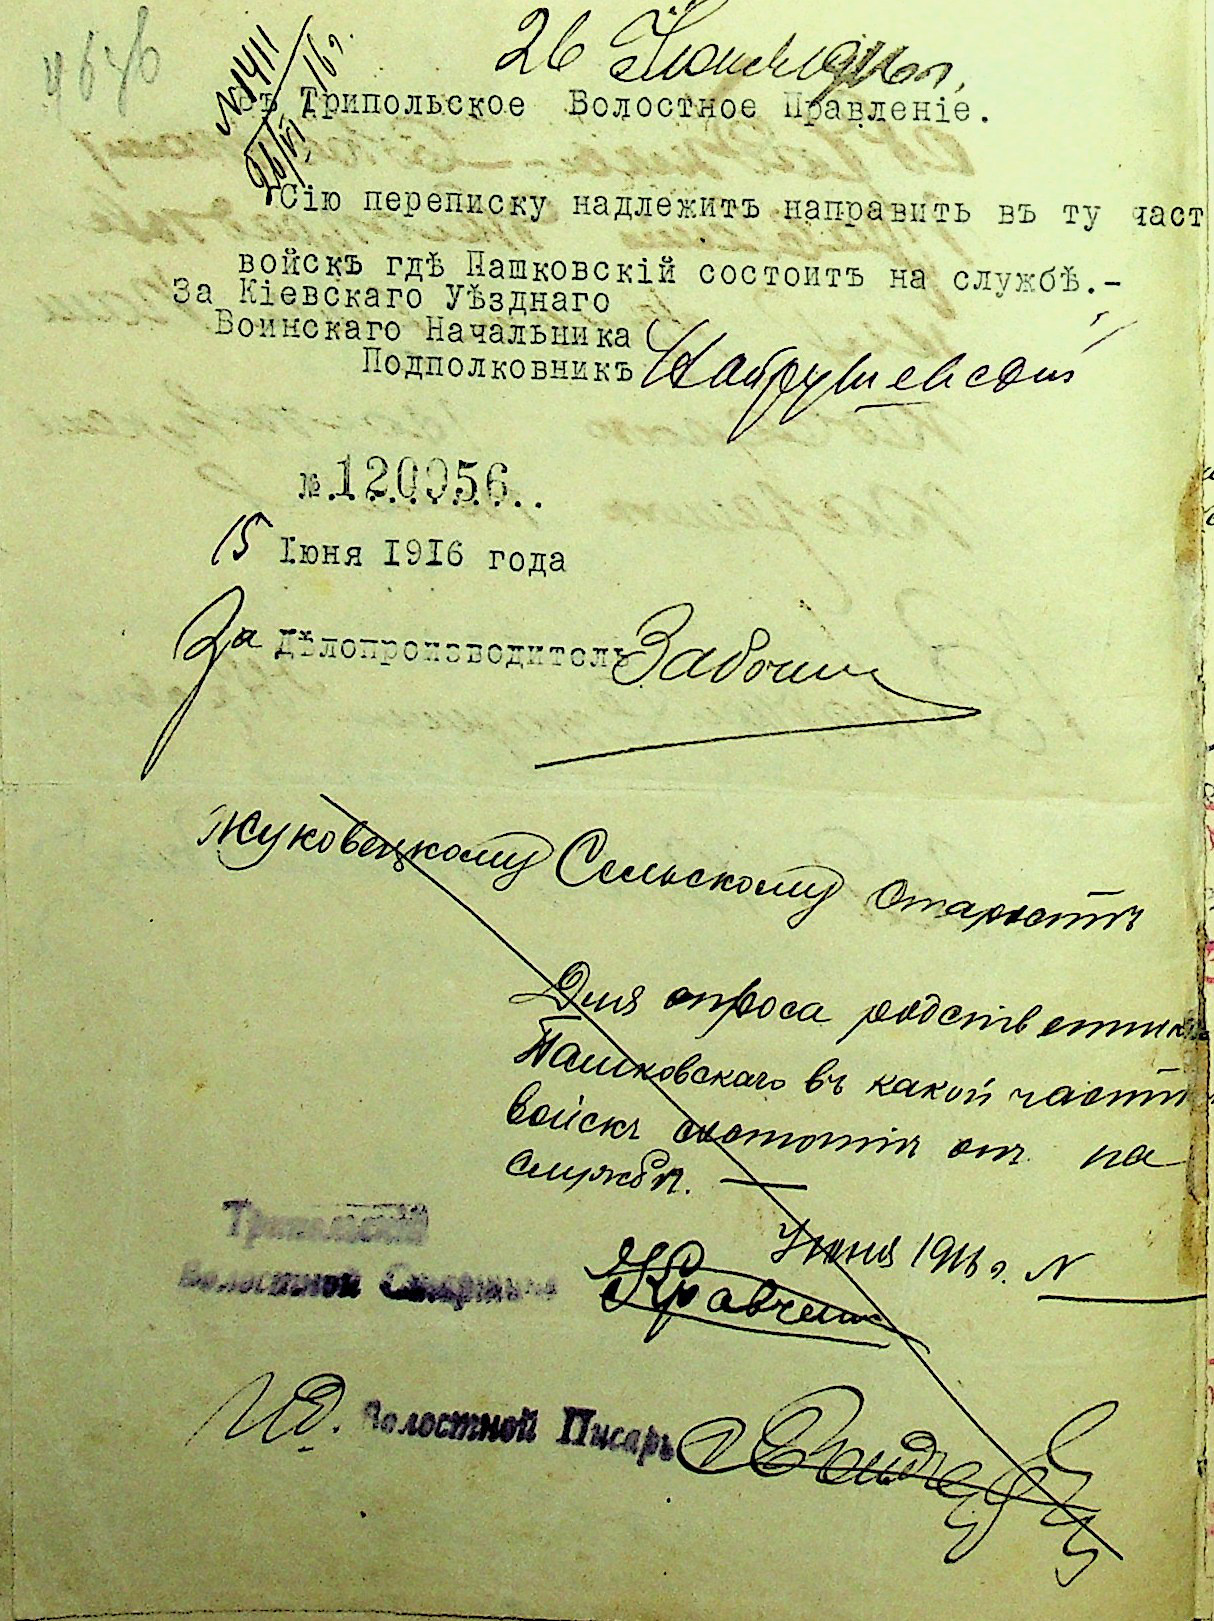 4646
26 Июня 1916 г.
№ 1411
26/VI 16 г.
Въ Трипольское Волостное Правленіе.
Сію переписку надлежитъ направить въ ту част
войскъ гдѣ Пашковскій состоитъ на службѣ.-
За Кіевскаго Уѣзднаго
Воинскаго Начальника
Подполковникъ
№ 120056
15 Іюня 1916 года
За Дѣлопроизводитель
Жуковецкому Сельскому Старостѣ
Для опроса родственник
Пашковскаго въ какой части
войскъ состоитъ онъ на
службѣ. —
Іюня 1916 г. №
Трипольскій
Волостной Старшина
Кравченко
И. д. Волостной Писарь